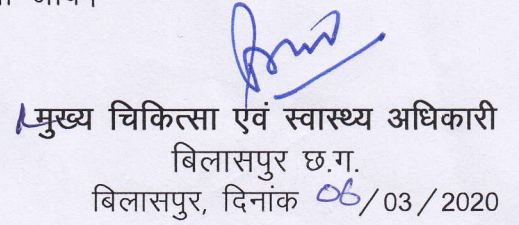 मुख्य चिकित्सा एवं स्वास्थ्य अधिकारी
बिलासपुर छ.ग.
बिलासपुर, दिनांक 06/03/2020